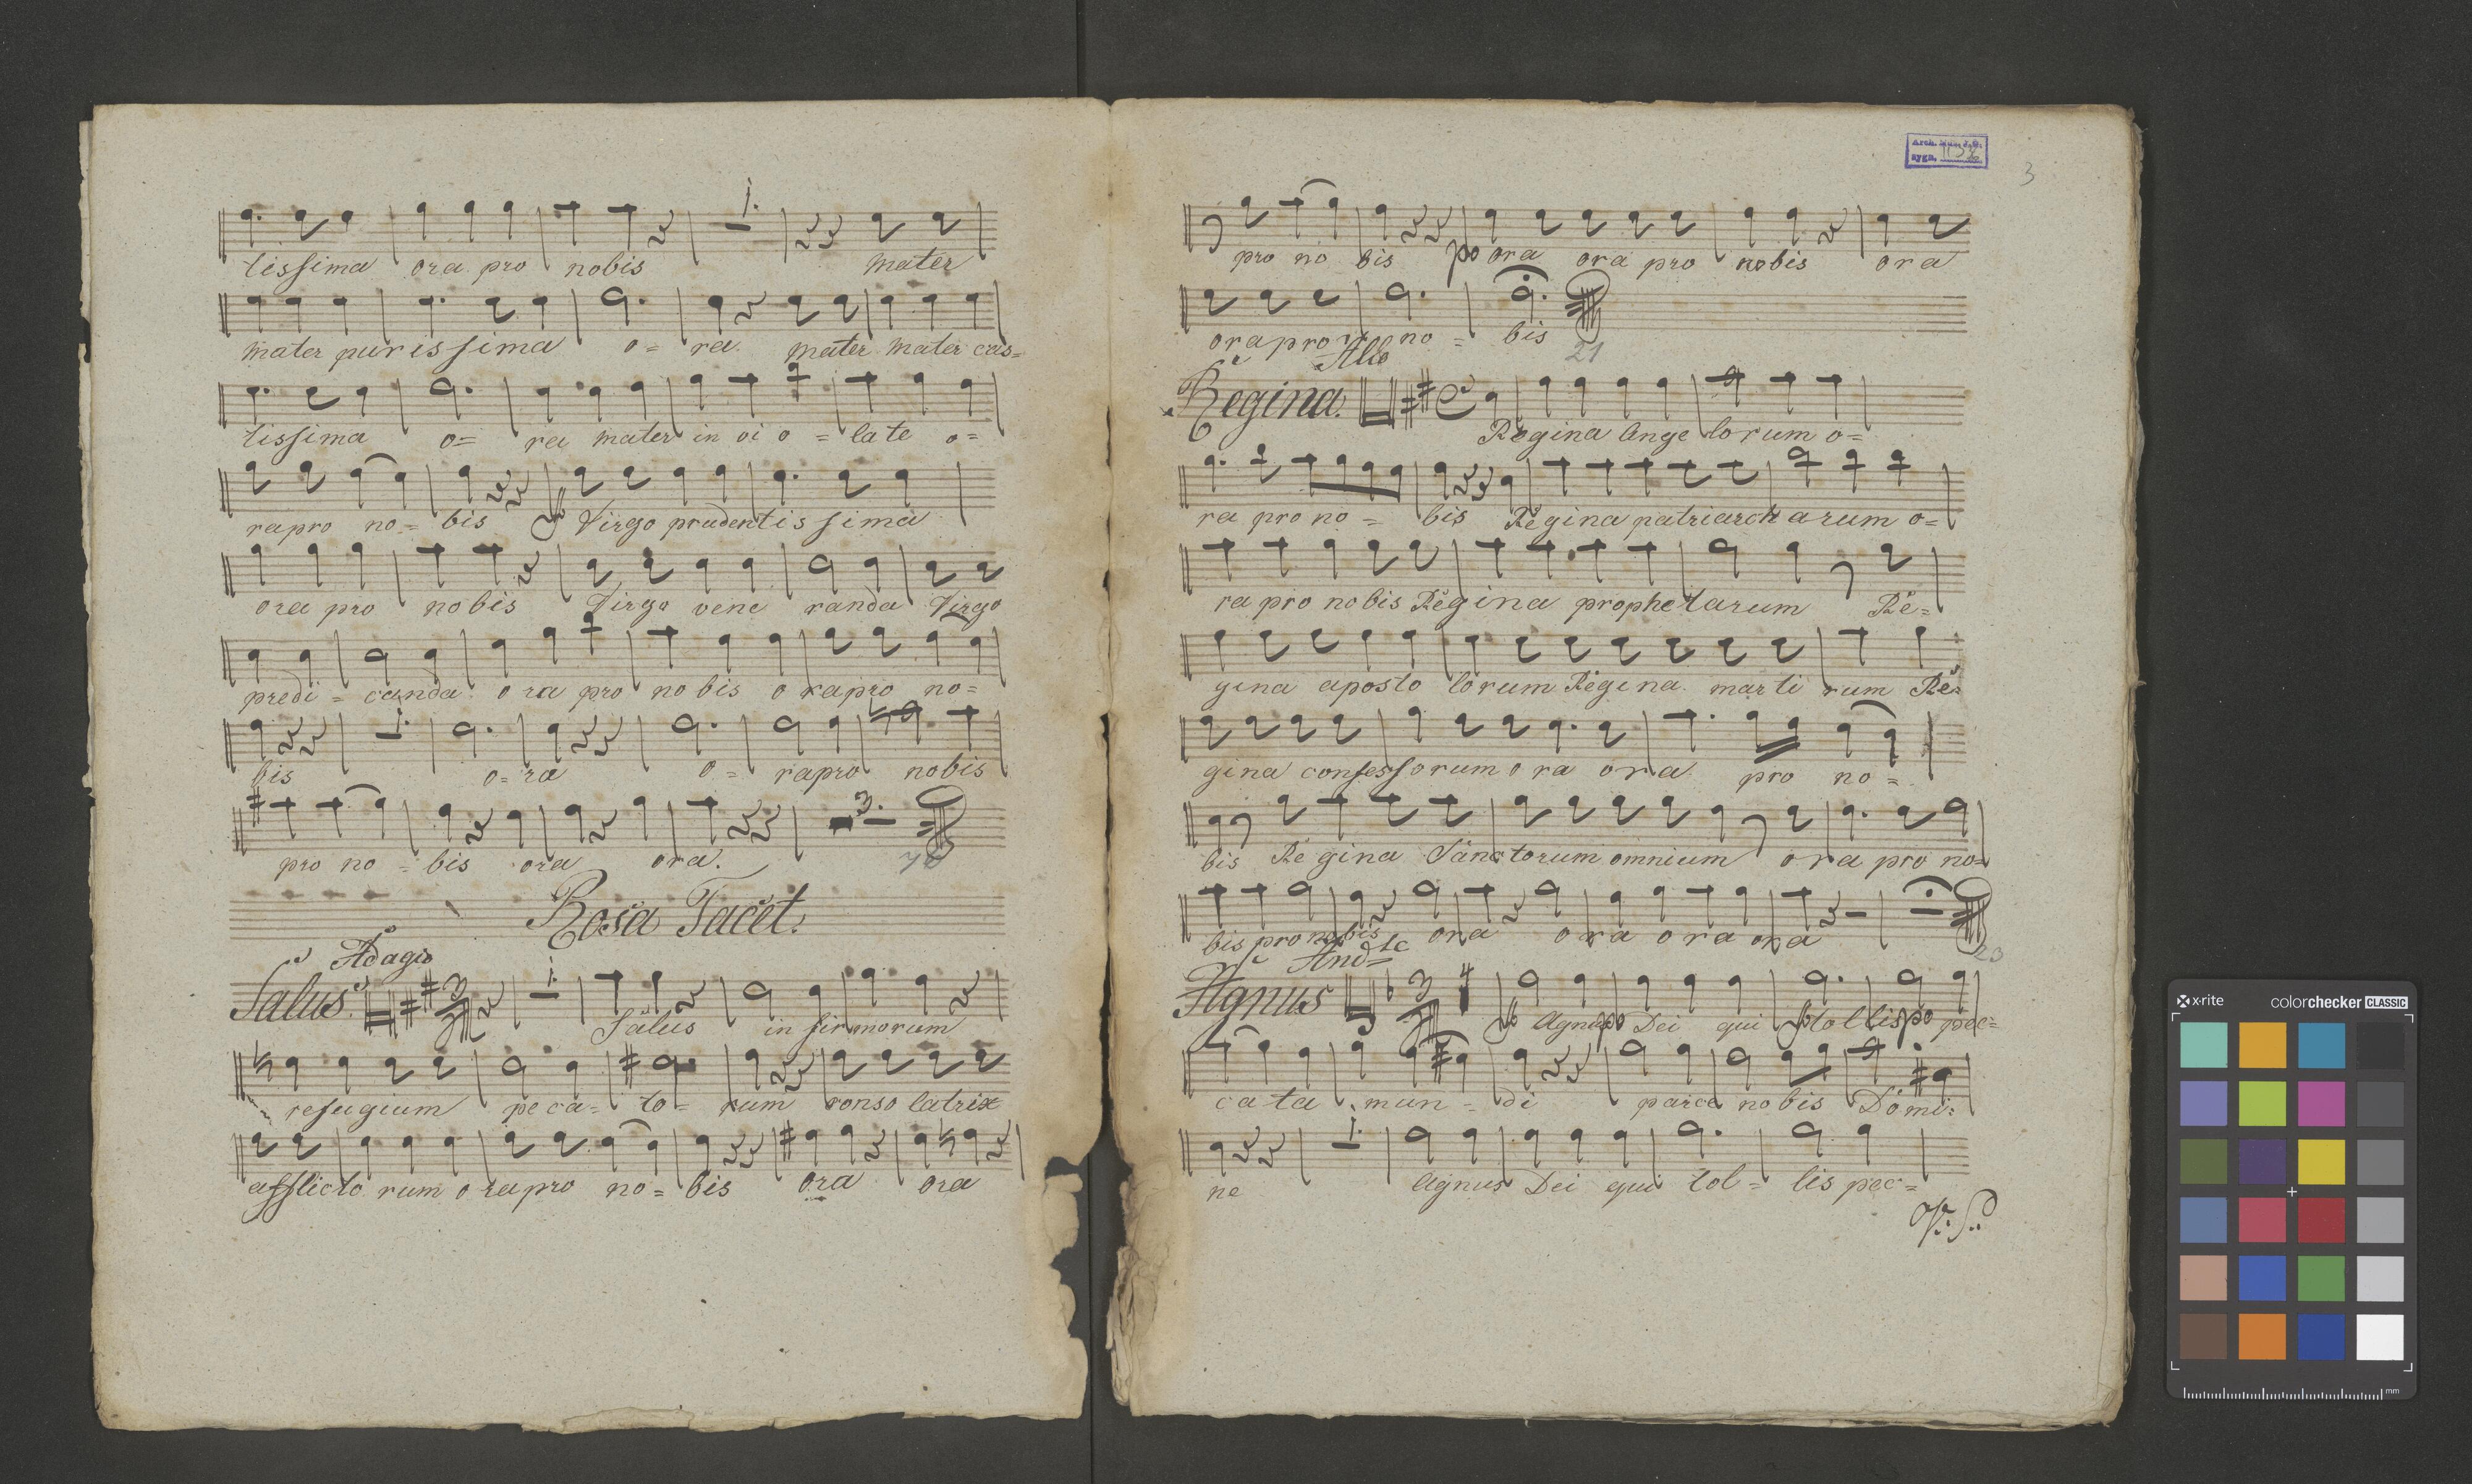 1.
tissima ora pro nobis Mater
Mater purissima o= ra Mater Mater cas=
tissima o= ra Mater in vi o = late o=
ra pro no= bis Virgo prudentis sima
ora pro nobis Virgo vene randa Virgo
predi = canda ora pro nobis ora pro no=
1.
bis o=ra o= ra pro nobis
3.
pro no = bis ora ora.
78
Rosa Tacet.
Adagio
1.
Salus. 3
Salus in firmorum
refugium pe ca= to= rum conso latrix
afflicto rum ora pro no= bis ora ora
Arch. Muz. J.G.
sygn. 1132
3
pro no bis po ora ora pro nobis ora
ora pro no = bis
21
Allo
Regina. C
Regina Ange lorum o=
ra pro no = bis Regina patriarch arum o=
ra pro nobis Regina prophetarum Re=
gina aposto lorum Regina marti rum Re=
gina confessorum ora ora pro no=
bis Regina Sanctorum omnium ora pro no=
bis pro nobis ora ora ora ora
23
And=te
Agnus 3/4
Agnus po Dei qui tollis po pec=
ca ta mun = di parce nobis Domi=
1.
ne Agnus Dei qui tol = lis pec=
V: S:
x-rite colorchecker CLASSIC
mm